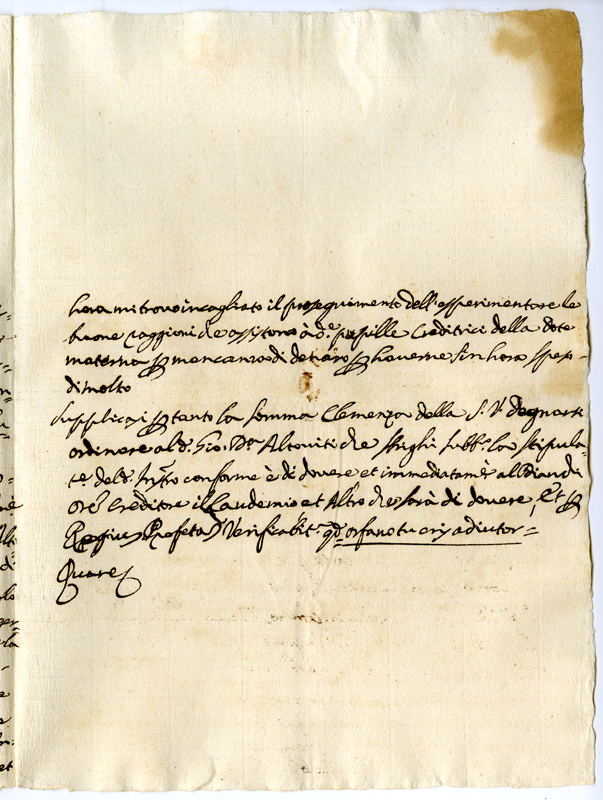 hora mi trovo incagliato il proseguimento dell'esperimentare le
buone raggioni che assistono à d.e pupille Creditrici della dote
materna per mancanza di denaro per haverne sin hora spesi
di molto
Supplicasi per tanto la somma Clemenza della S. V. degnarsi
ordinare al d. Gio. Altoviti che sbrighi subb.o la stipula-
te del d. Instro conforme è di dovere et immediatamte al
Creditore il laudemio et altro che sarà di dovere, Et per
Regius Profeta Verificabit.r orfano tu eris adiutor=
Quare